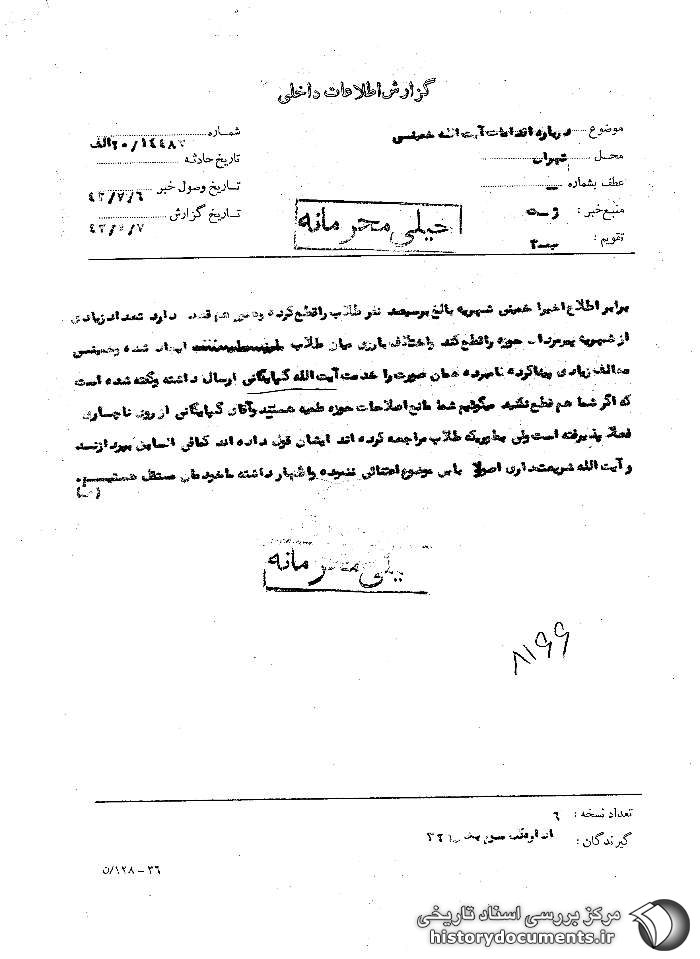 گزارش اطلاعات داخلی
موضوع درباره اقدامات آیت الله خمینی
شماره ۲۰/۱۴۴۸۷الف
محل تهران
تاریخ حادثه
عطف بشماره
تاریخ وصول خبر ۴۲/۷/۶
منبع خبر :
تاریخ گزارش ۴۲/۷/۷
تقویم : ب-۲
خیلی محرمانه
برابر اطلاع اخیرا خمینی شهریه بالغ بر سیصد نفر طلاب را قطع کرده و هم قصد دارد تعداد زیادی
از شهریه حوزه را قطع کند و اختلاف بارزی میان طلاب ایجاد شده و خمینی
مخالف زیادی پیدا کرده نامبرده همان صورت را خدمت آیت الله گلپایگانی ارسال داشته و گفته شده است
که اگر شما هم قطع نکنید میگوئیم شما مانع اصلاحات حوزه علمیه هستید و آقای گلپایگانی از روی ناچاری
فعلا پذیرفته است ولی بطوریکه طلاب مراجعه کرده اند ایشان قول داده اند کمافی السابق بپردازند
و آیت الله شریعتمداری اصولا باین موضوع اعتنائی ننموده و اظهار داشته ما خودمان مستقل هستیم.
خیلی محرمانه
۸۱۶۶
تعداد نسخه : ۶
گیرندگان : ۳۲۱
۳۶ – ۱۲۸/ن
مرکز بررسی اسناد تاریخی
historydocuments.ir